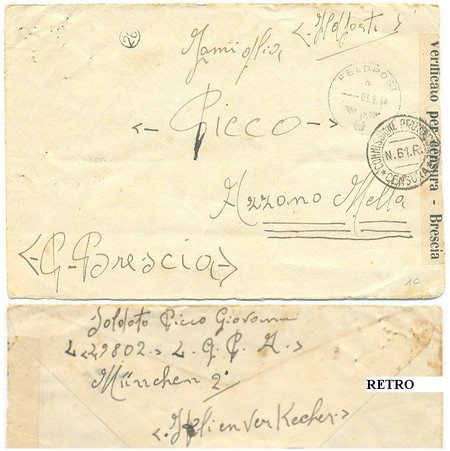 28
<Feldposti>
Famiglia
FELDPOST
a
03.5.44
<- Picco ->
COMMISSIONE PROVINCIALE
N.61.R.
CENSURA
Verificato per censura - Brescia
Azzano Mella
<- G-Brescia ->
10
Soldato Picco Giovanni
L<49802.> L. G. P. A.>
München 2.
RETRO